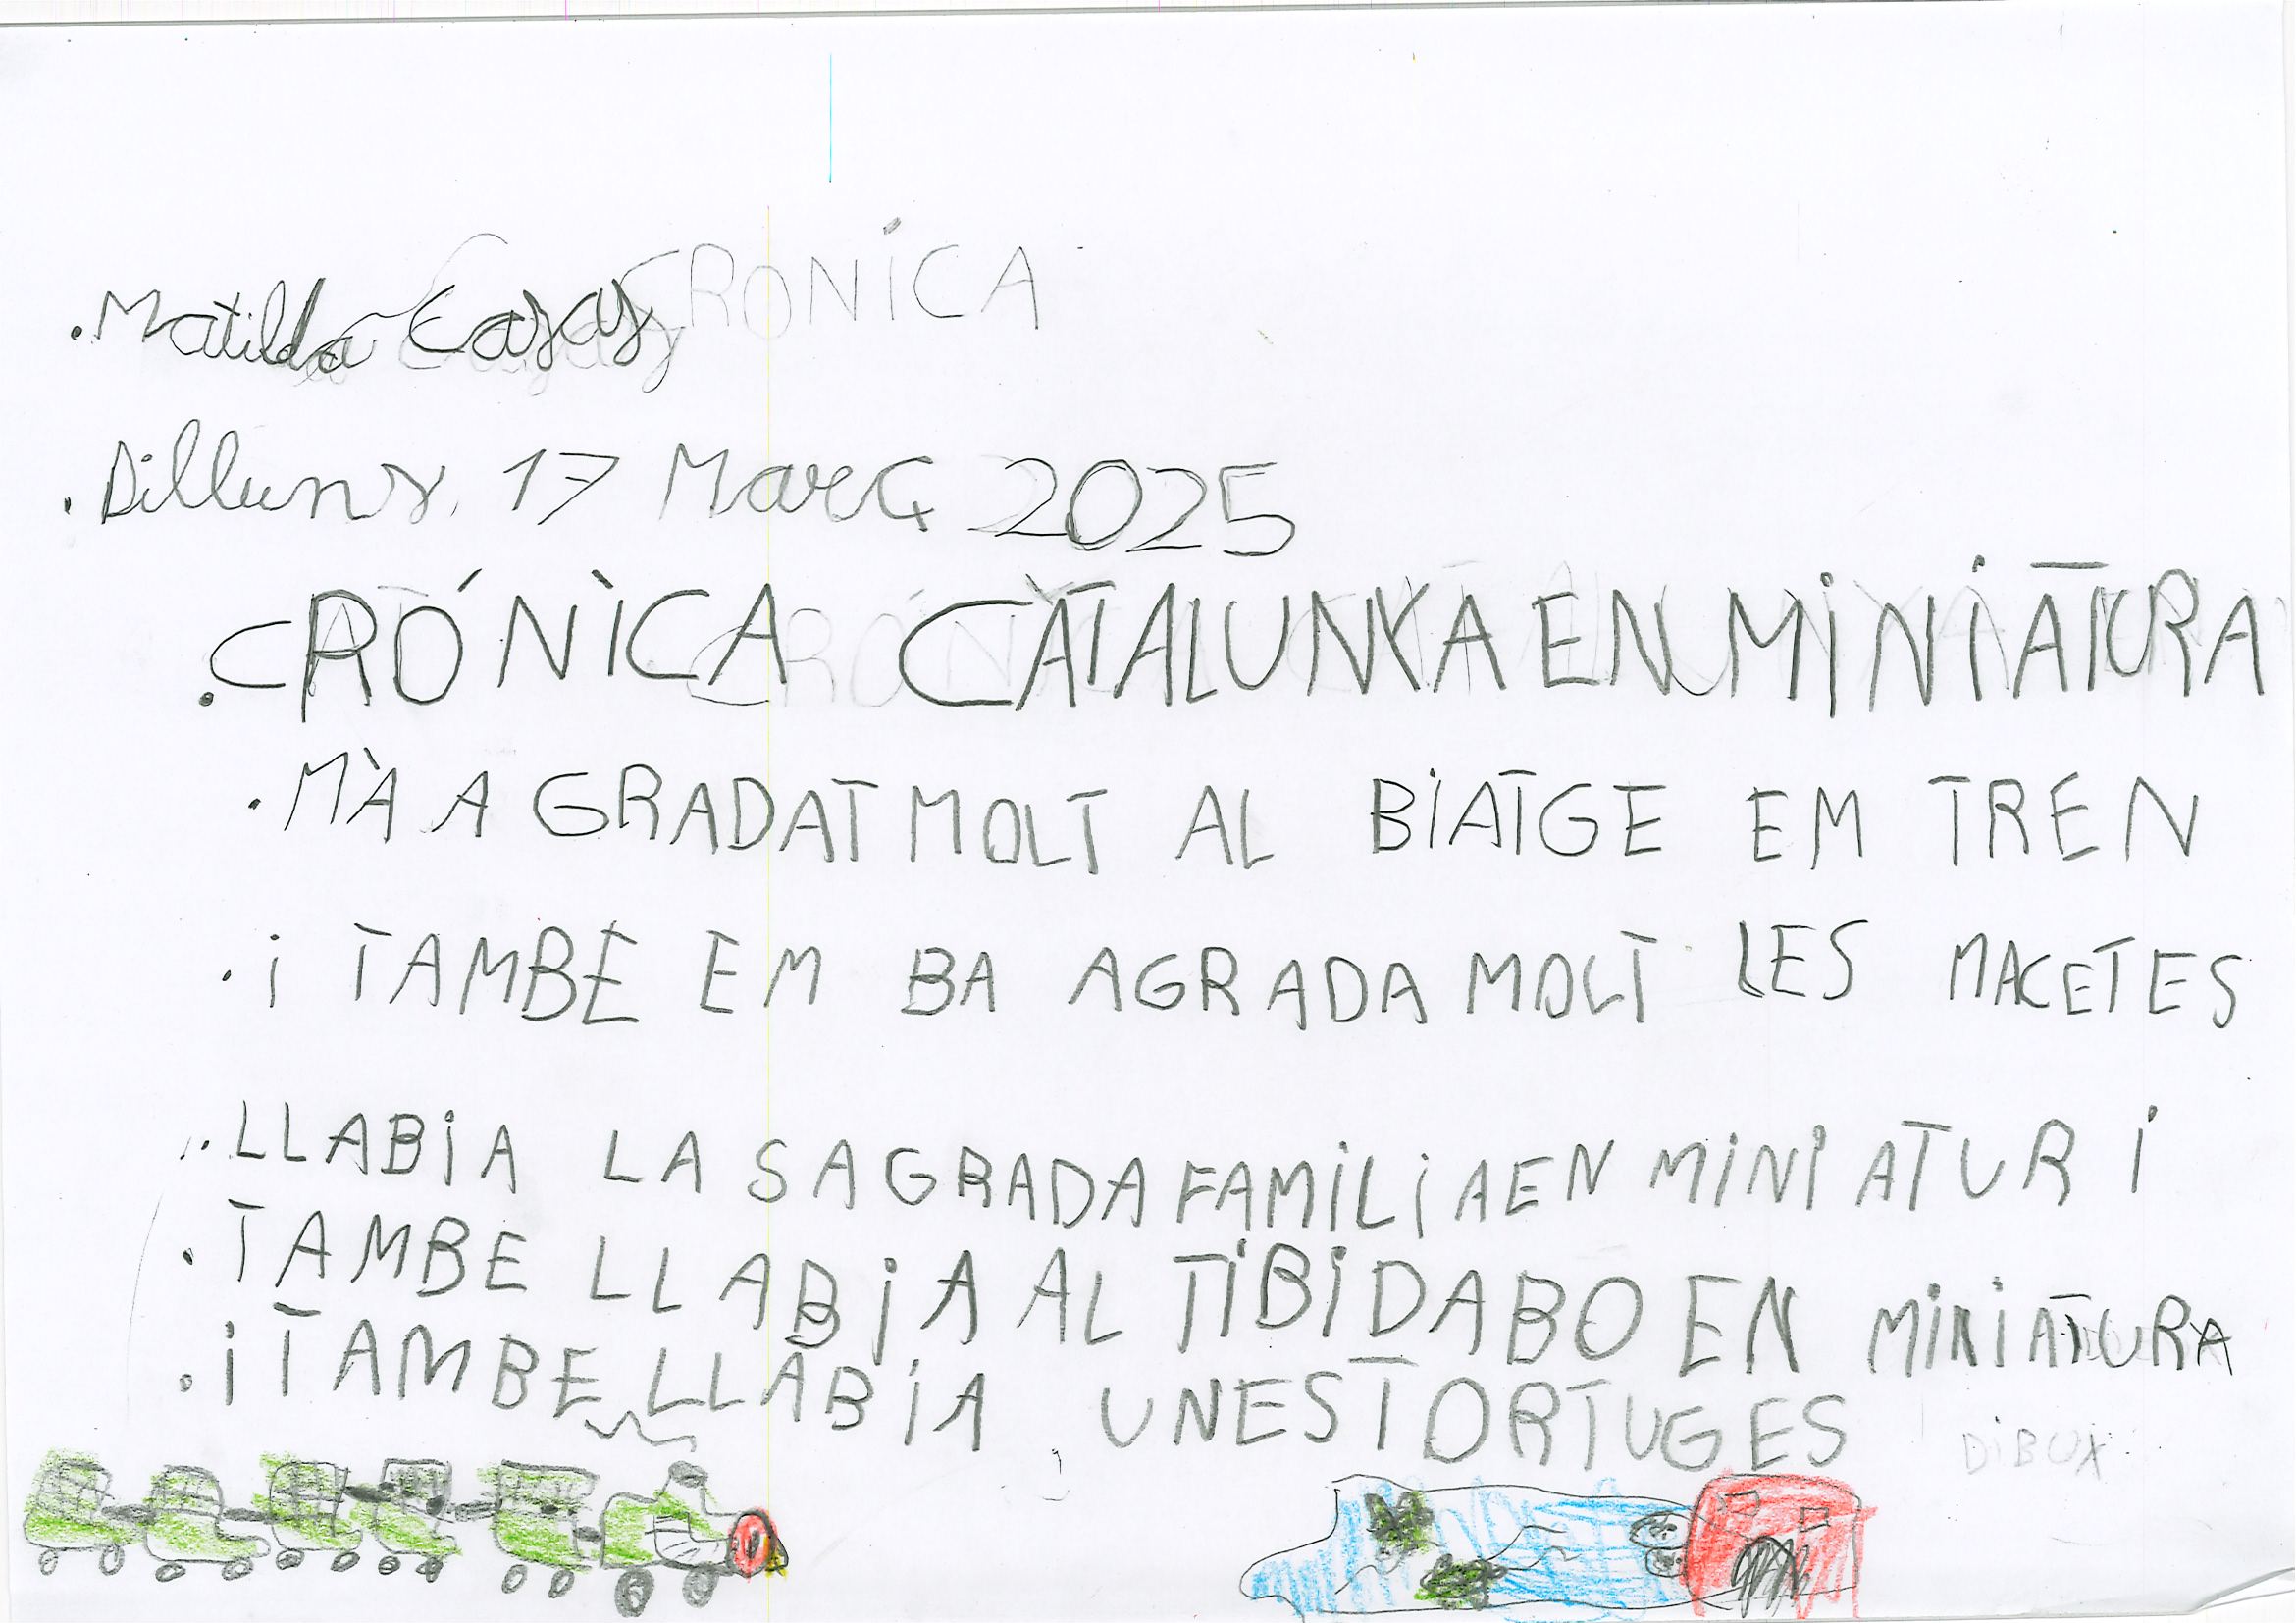 CRONiCA
.Matilda Casas
.Dilluns, 17 Març 2025
.CRÓNÌCA CATALUNYA EN MiNiATURA
.M'À A GRADAT MOLT AL BiATGE EM TREN
.i TAMBE EM BA AGRADA MOLT LES MACETES
.LLABiA LA SAGRADA FAMiLiA EN MiNiATUR i
.TAMBE LLABiA AL TiBiDABO EN MiNiATURA
.i TAMBE LLABiA UNES TORTUGES
DiBUX